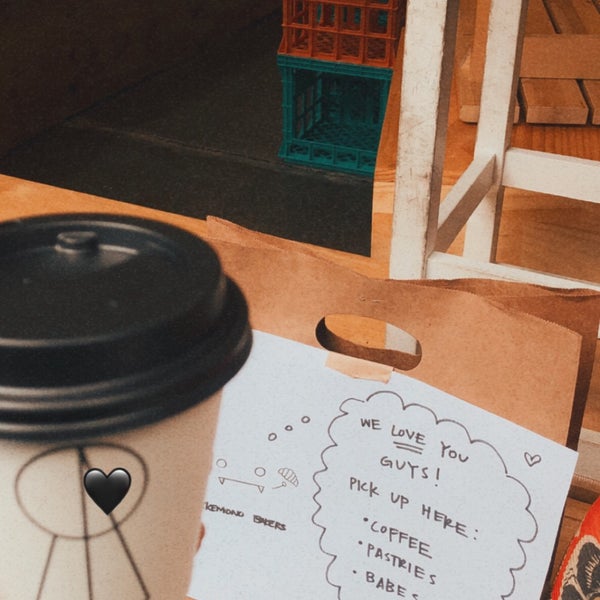 WE LOVE YOU
GUYS!
PICK UP HERE:
• COFFEE
• PASTRIES
• BABES
KEMONO BAKERS